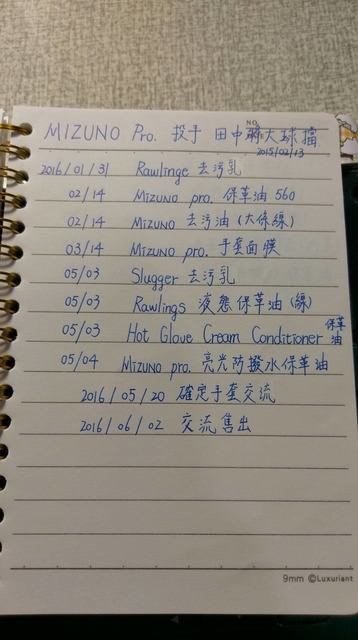 MIZUNO Pro. 投手 田中將大球檔
NO.
2015/02/13
2016/01/31 Rawlinge 去污乳
02/14 MIZUNO pro. 保革油 560
02/14 MIZUNO 去污油(大條綠)
03/14 MIZUNO pro. 手套面膜
05/03 Slugger 去污乳
05/03 Rawlings 液態保革油(綠)
05/03 Hot Glove Cream Conditioner 保革油
05/04 MIZUNO pro. 亮光防撥水保革油
2016/05/20 確定手套交流
2016/06/02 交流售出
9mm ©Luxuriant